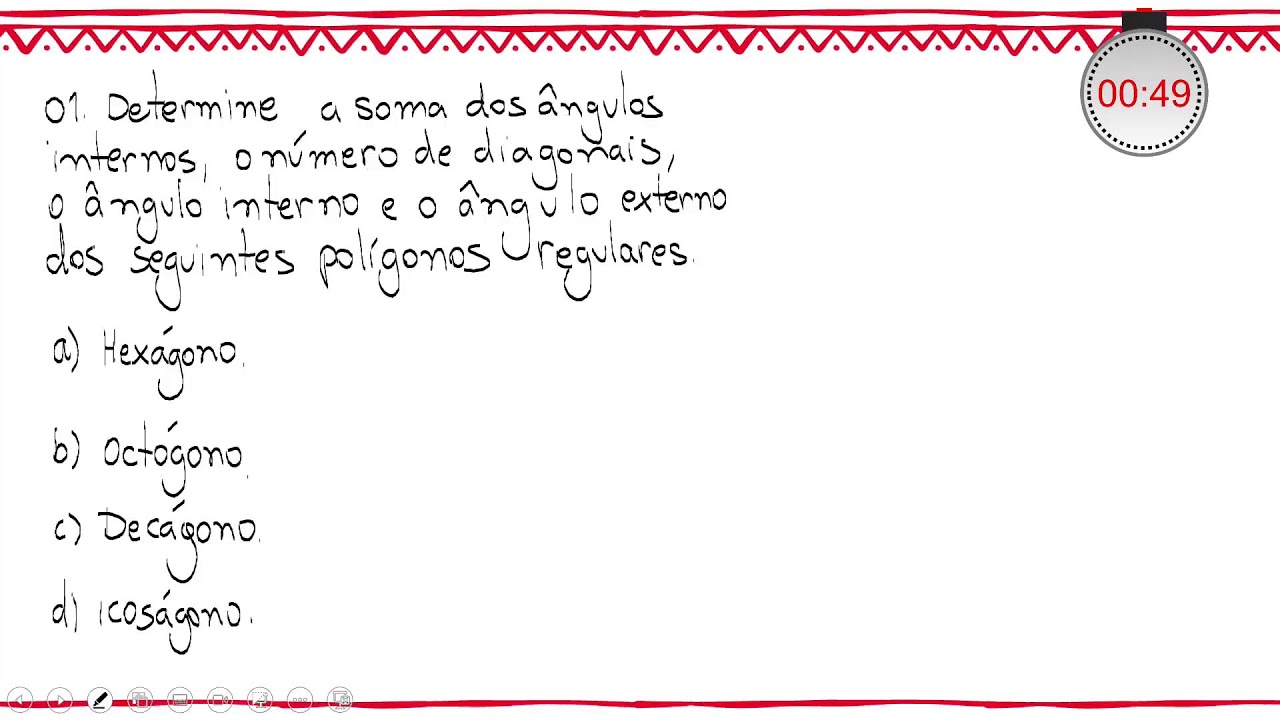 00:49
01. Determine a soma dos ângulos
internos, o número de diagonais,
o ângulo interno e o ângulo externo
dos seguintes polígonos regulares.
a) Hexágono.
b) Octógono.
c) Decágono.
d) icoságono.